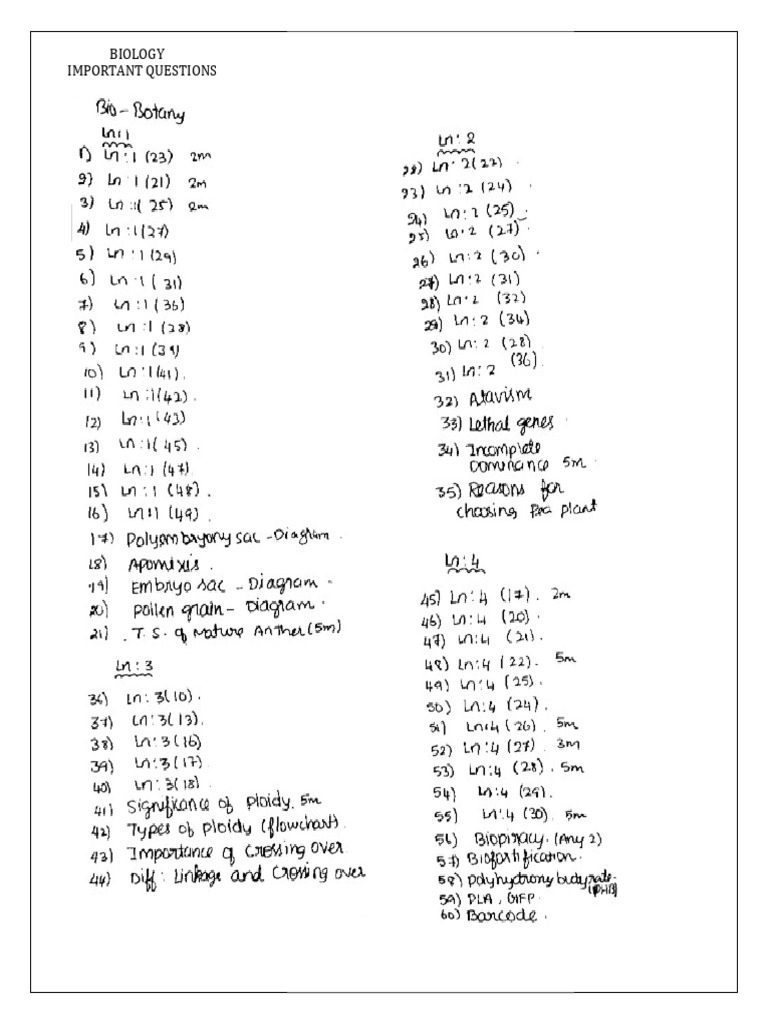 BIOLOGY
IMPORTANT QUESTIONS
Bio - Botany
Ln:1
1) Ln:1 (23) 2m
2) Ln:1 (21) 2m
3) Ln:1( 25) 2m
4) Ln:1(27)
5) Ln:1 (29)
6) Ln:1 ( 31)
7) Ln:1 (36)
8) Ln:1 (28)
9) Ln:1 (39
10) Ln:1(41).
11) Ln:1(42).
12) Ln:1 (43)
13) Ln:1( 45).
14) Ln:1 (47).
15) Ln:1 (48).
16) Ln:1 (49).
17) Polyembryony sac - Diagram.
18) Apomixis.
19) Embryo sac - Diagram.
20) Pollen grain - Diagram.
21) T.S. of Mature Anther (5m)
Ln:3
36) Ln: 3(10).
37) Ln:3(13).
38) Ln:3(16)
39) Ln:3(17).
40) Ln:3(18).
41) Significance of Ploidy. 5m
42) Types of Ploidy (flowchart).
43) Importance of Crossing over
44) Diff: Linkage and Crossing over
Ln: 2
22) Ln: 2(22).
23) Ln:2 (24)
24) Ln:2 (25)
25) Ln:2 (27).
26) Ln:2 (30).
27) Ln:2 (31)
28) Ln:2 (32)
29) Ln:2 (34)
30) Ln:2 (28)
31) Ln:2 (36).
32) Atavism
33) Lethal genes.
34) Incomplete
Dominance 5m.
35) Reasons for
choosing Pea plant
Ln:4
45) Ln:4 (17). 2m
46) Ln:4 (20).
47) Ln:4 (21).
48) Ln:4 (22). 5m
49) Ln:4 (25).
50) Ln:4 (24).
51) Ln:4 (26). 5m
52) Ln:4 (27). 3m
53) Ln:4 (28). 5m
54) Ln:4 (29).
55) Ln:4 (30). 5m
56) Biopiracy. (Any 2)
57) Biofortification.
58) Polyhydroxybutyrate.
(PHB)
59) PLA, GFP
60) Barcode.